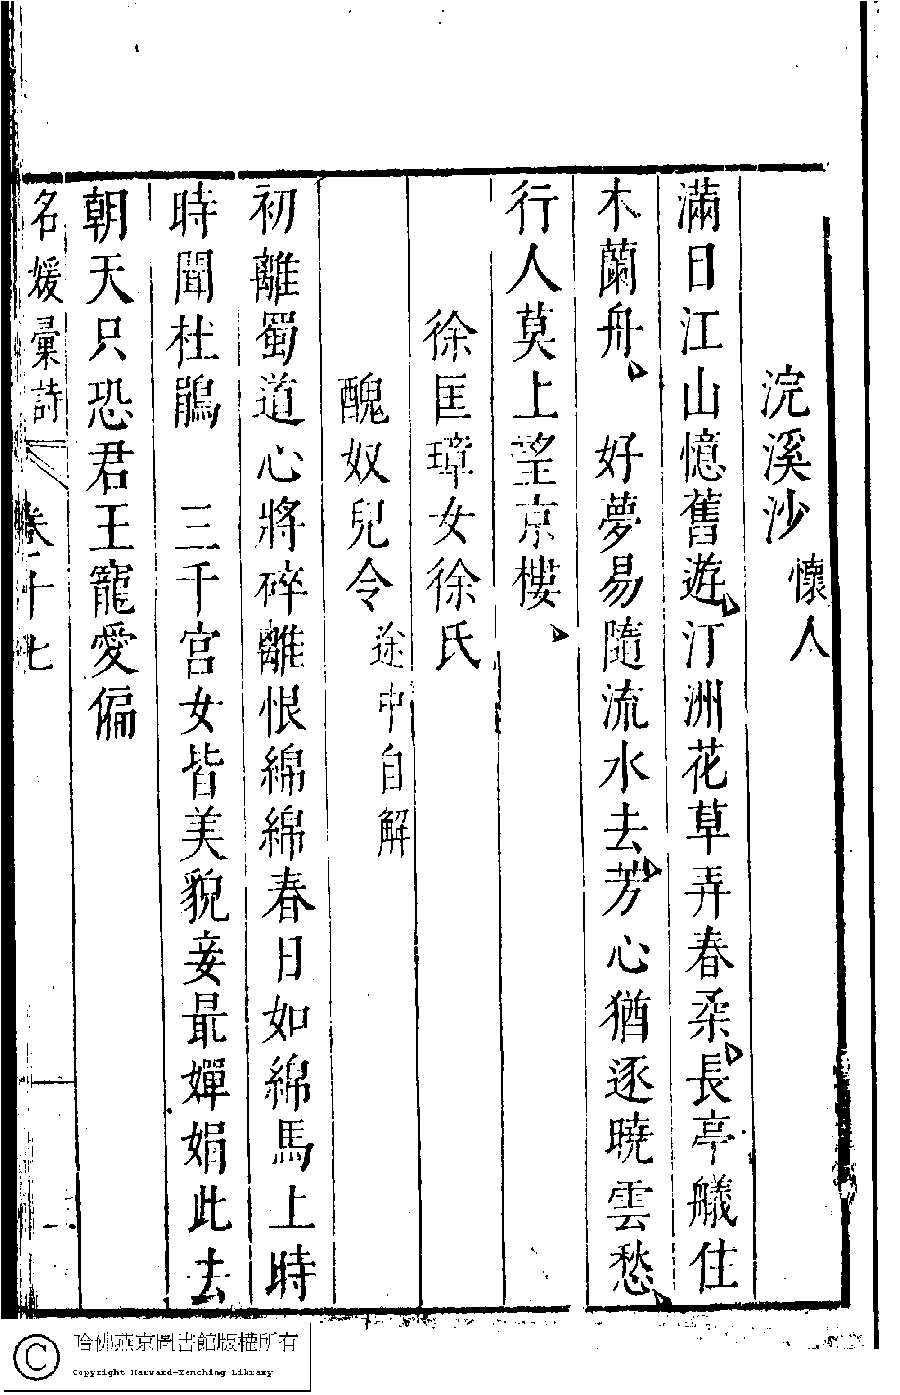 浣溪沙 懷人
滿日江山憶舊遊汀洲花草弄春柔長亭艤住
木蘭舟 好夢易隨流水去芳心猶逐曉雲愁
行人莫上望京樓
徐匡璋女徐氏
醜奴兒令 途中自解
初離蜀道心將碎離恨綿綿春日如綿馬上時
時聞杜鵑 三千宫女皆美貌妾最嬋娟此去
朝天只恐君王寵愛偏
名媛彙詩 卷十七
哈佛燕京圖書館版權所有
Copyright Harvard-Yenching Library